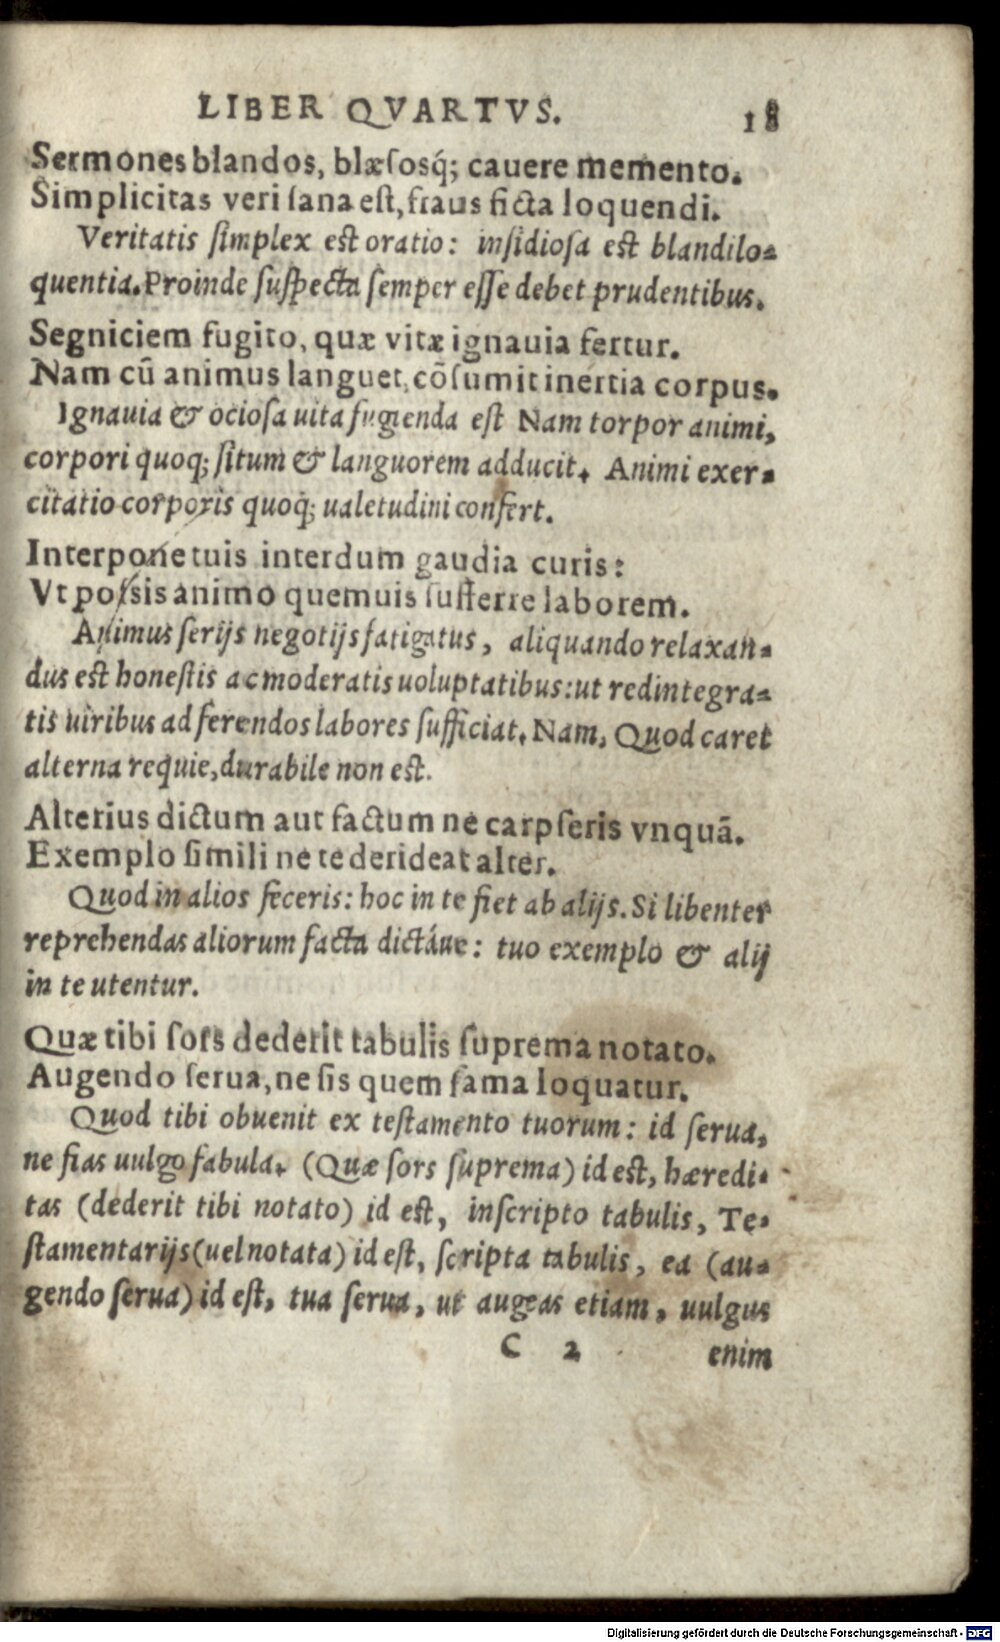 LIBER QVARTVS. 18
Sermones blandos, blæsosq́; cauere memento.
Simplicitas veri sana est, fraus ficta loquendi.
Veritatis simplex est oratio: insidiosa est blandilo-
quentia. Proinde suspecta semper esse debet prudentibus.
Segniciem fugito, quæ vitæ ignauia fertur.
Nam cū animus languet, cōsumit inertia corpus.
Ignauia & ociosa uita fugienda est Nam torpor animi,
corpori quoq; situm & languorem adducit. Animi exer-
citatio corporis quoq; ualetudini confert.
Interpone tuis interdum gaudia curis:
Vt possis animo quemuis sufferre laborem.
Animus serijs negotijs fatigatus, aliquando relaxan-
dus est honestis ac moderatis uoluptatibus: ut redintegra-
tis uiribus ad ferendos labores sufficiat. Nam, Quod caret
alterna requie, durabile non est.
Alterius dictum aut factum ne carpseris vnquā.
Exemplo simili ne te derideat alter.
Quod in alios feceris: hoc in te fiet ab alijs. Si libenter
reprehendas aliorum facta dictáue: tuo exemplo & alij
in te utentur.
Quæ tibi sors dederit tabulis suprema notato.
Augendo serua, ne sis quem fama loquatur.
Quod tibi obuenit ex testamento tuorum: id serua,
ne fias uulgo fabula. (Quæ sors suprema) id est, hæredi-
tas (dederit tibi notato) id est, inscripto tabulis, Te-
stamentarijs (uel notata) id est, scripta tabulis, ea (au-
gendo serua) id est, tua serua, ut augeas etiam, uulgus
C 2 enim
Digitalisierung gefördert durch die Deutsche Forschungsgemeinschaft - DFG